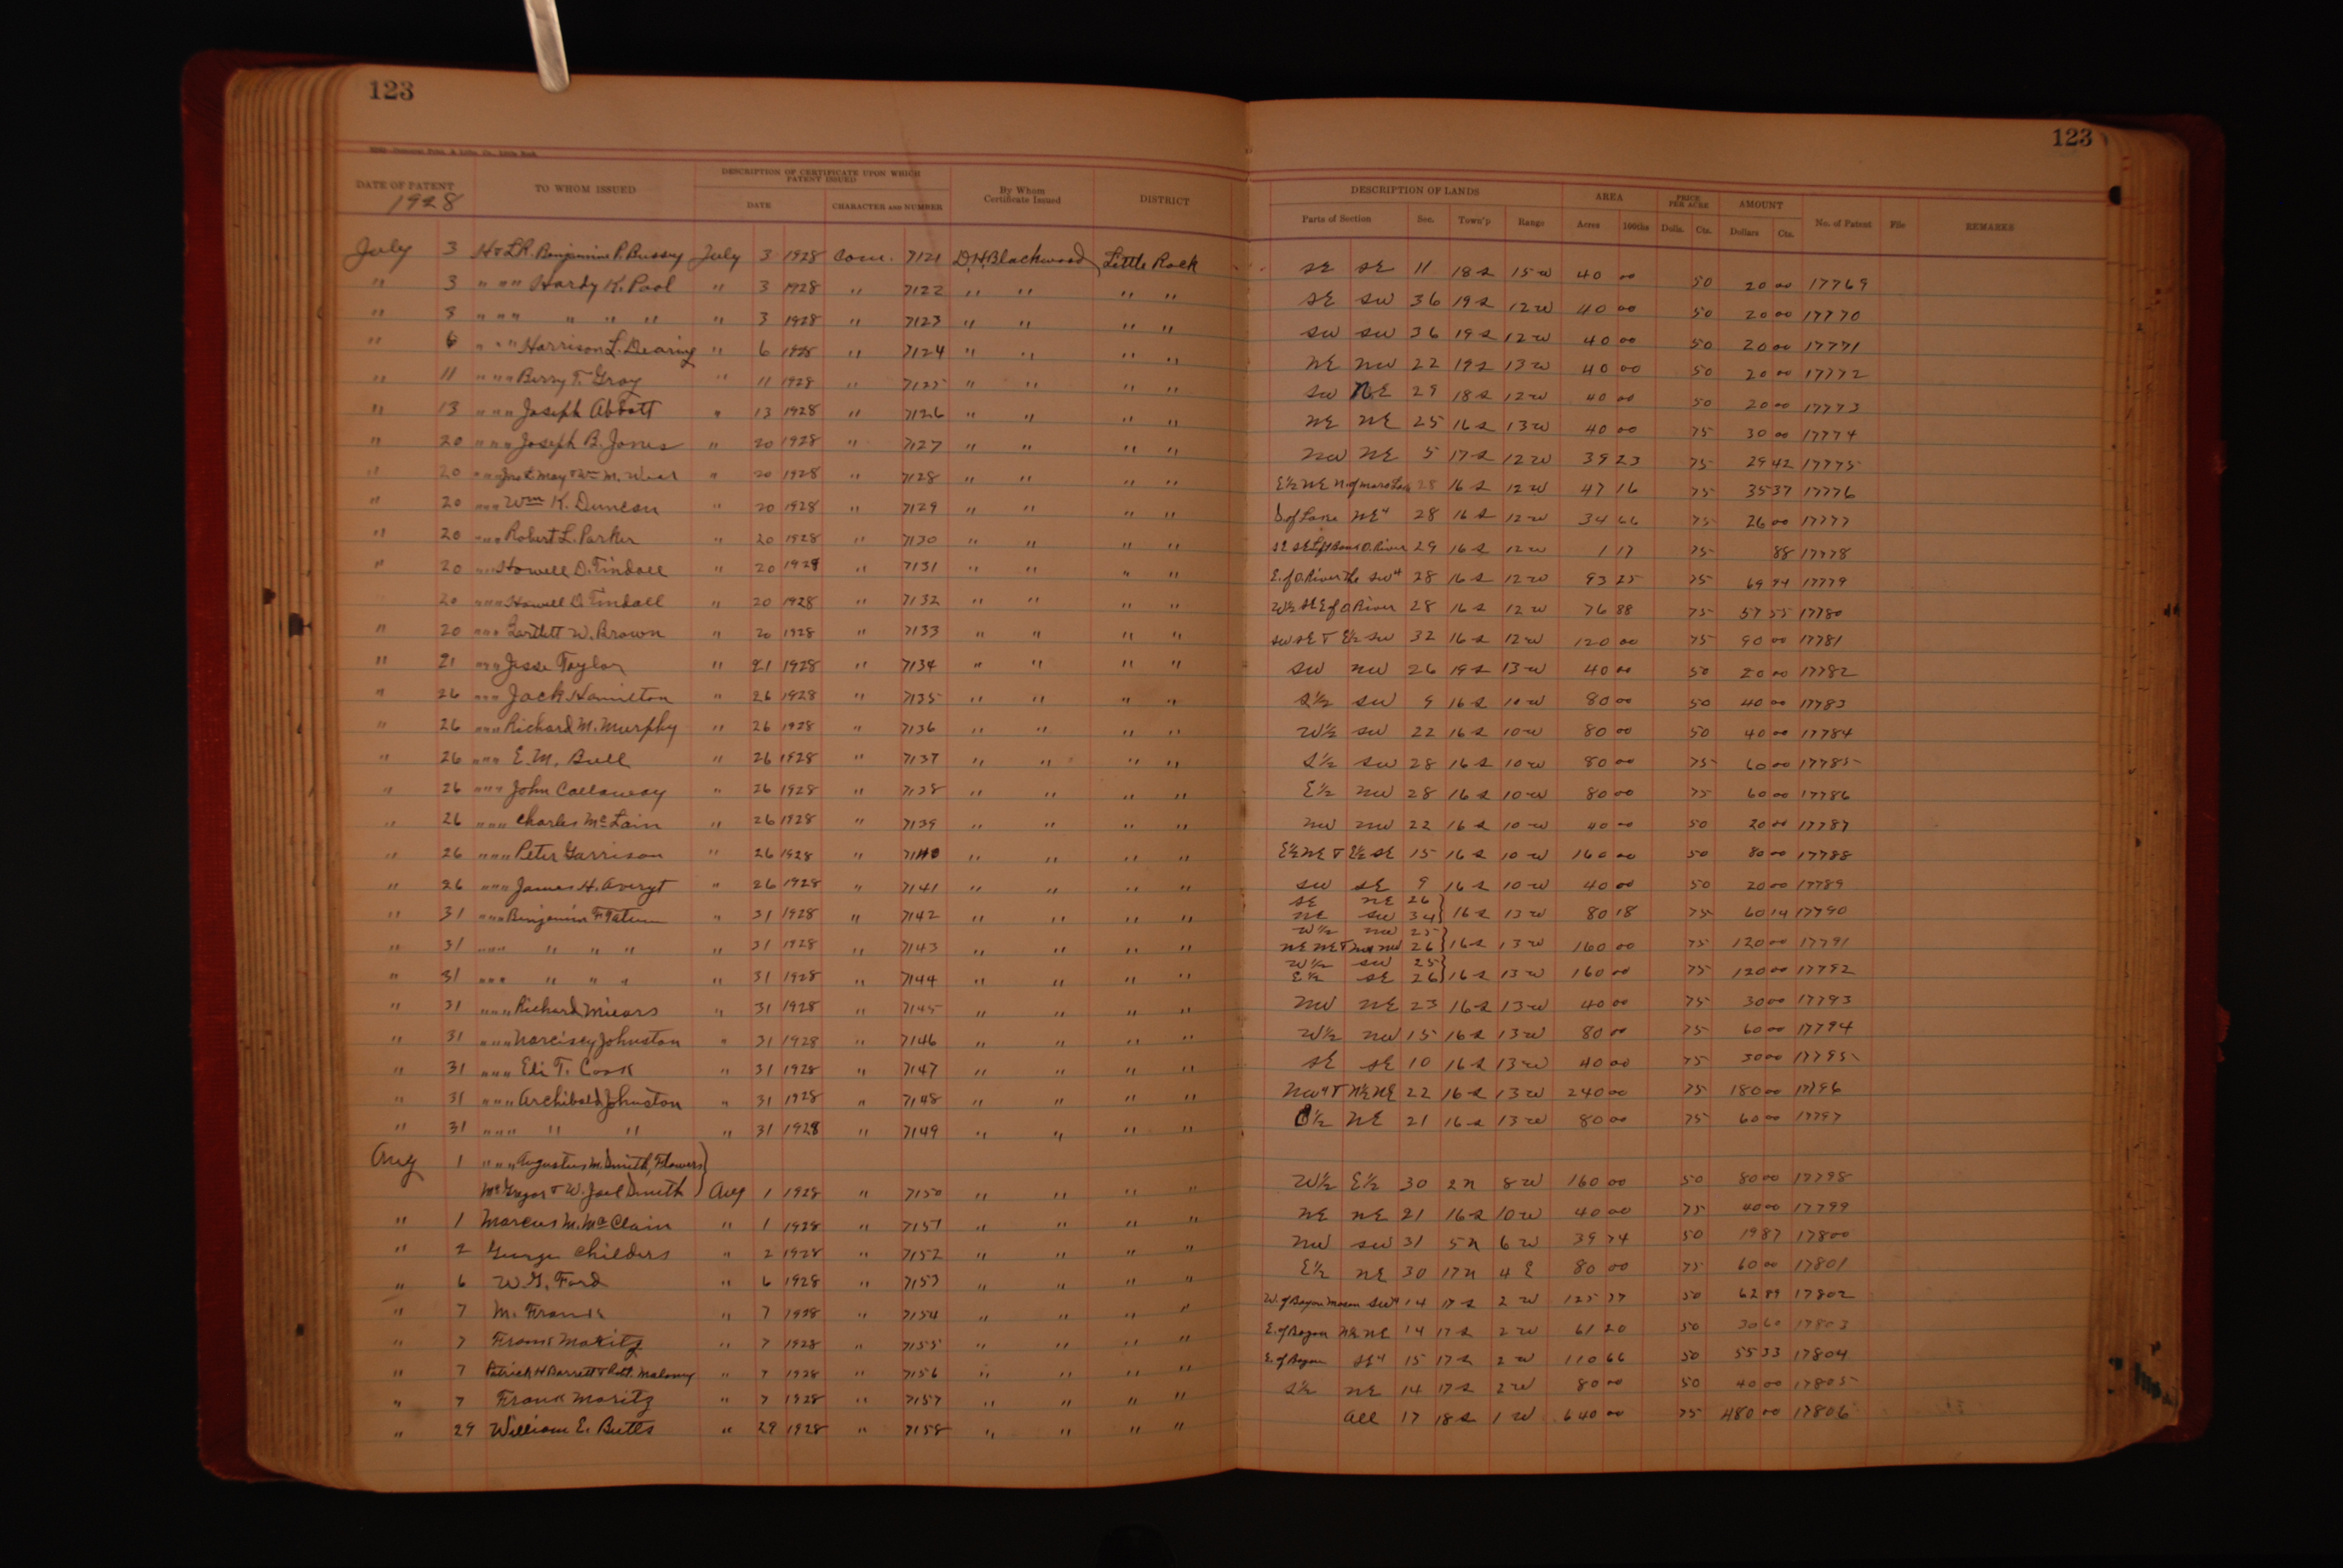 123
123
DATE OF PATENT TO WHOM ISSUED DESCRIPTION OF CERTIFICATE UPON WHICH PATENT ISSUED By Whom Certificate Issued DISTRICT DESCRIPTION OF LANDS AREA PRICE PER ACRE AMOUNT No. of Patent File REMARKS
1928 DATE CHARACTER AND NUMBER Parts of Section Sec. Town'p Range Acres 100ths Dolls. Cts. Dollars Cts.
July 3 H & L R. Benjamine P. Bussey July 3 1928 Com. 7121 D.H. Blackwood Little Rock SE SE 11 18 S 15 W 40 00 50 20 00 17769
" 3 " " " Hardy K. Pool " 3 1928 " 7122 " " " " SE SW 36 19 S 12 W 40 00 50 20 00 17770
" 3 " " " " " " " 3 1928 " 7123 " " " " SW SW 36 19 S 12 W 40 00 50 20 00 17771
" 6 " " " Harrison L. Dearing " 6 1928 " 7124 " " " " NE NW 22 19 S 13 W 40 00 50 20 00 17772
" 11 " " " Berry T. Gray " 11 1928 " 7125 " " " " SW NE 29 18 S 12 W 40 00 50 20 00 17773
" 13 " " " Joseph Abbott " 13 1928 " 7126 " " " " NE NE 25 16 S 13 W 40 00 75 30 00 17774
" 20 " " " Joseph B. Jones " 20 1928 " 7127 " " " " NW NE 5 17 S 12 W 39 23 75 29 42 17775
" 20 " " " Jno L. May & Wm M. Wear " 20 1928 " 7128 " " " " E½ NE N. of Maro Lake 28 16 S 12 W 47 16 75 35 37 17776
" 20 " " " Wm K. Duncan " 20 1928 " 7129 " " " " S. of Lake NE4 28 16 S 12 W 34 66 75 26 00 17777
" 20 " " " Robert L. Parker " 20 1928 " 7130 " " " " SE SE Left Bank O. River 29 16 S 12 W 1 17 75 88 17778
" 20 " " " Howell D. Tindall " 20 1928 " 7131 " " " " E. of O River the SW4 28 16 S 12 W 93 25 75 69 94 17779
20 " " " Howell D. Tindall " 20 1928 " 7132 " " " " W½ SE E of O. River 28 16 S 12 W 76 88 75 57 55 17780
" 20 " " " Bartlett W. Brown " 20 1928 " 7133 " " " " SW SE & E½ SW 32 16 S 12 W 120 00 75 90 00 17781
" 21 " " " Jesse Taylor " 21 1928 " 7134 " " " " SW NW 26 19 S 13 W 40 00 50 20 00 17782
" 26 " " " Jack Hamilton " 26 1928 " 7135 " " " " S½ SW 9 16 S 10 W 80 00 50 40 00 17783
" 26 " " " Richard M. Murphy " 26 1928 " 7136 " " " " W½ SW 22 16 S 10 W 80 00 50 40 00 17784
" 26 " " " E. M. Bull " 26 1928 " 7137 " " " " S½ SW 28 16 S 10 W 80 00 75 60 00 17785
" 26 " " " John Callaway " 26 1928 " 7138 " " " " E½ NW 28 16 S 10 W 80 00 75 60 00 17786
" 26 " " " Charles McLain " 26 1928 " 7139 " " " " NW NW 22 16 S 10 W 40 00 50 20 00 17787
" 26 " " " Peter Garrison " 26 1928 " 7140 " " " " E½ NE & E½ SE 15 16 S 10 W 160 00 50 80 00 17788
" 26 " " " James H. Averyt " 26 1928 " 7141 " " " " SW SE 9 16 S 10 W 40 00 50 20 00 17789
SE NE 26
" 31 " " " Benjamin F Tatum " 31 1928 " 7142 " " " " NE SW 34 16 S 13 W 80 18 75 60 14 17790
W½ NW 25
" 31 " " " " " " " 31 1928 " 7143 " " " " NE NE & NW NW 26 16 S 13 W 160 00 75 120 00 17791
W½ SW 25
" 31 " " " " " " " 31 1928 " 7144 " " " " E½ SE 26 16 S 13 W 160 00 75 120 00 17792
" 31 " " " Richard Mears " 31 1928 " 7145 " " " " NW NE 23 16 S 13 W 40 00 75 30 00 17793
" 31 " " " Narcissy Johnston " 31 1928 " 7146 " " " " W½ NW 15 16 S 13 W 80 00 75 60 00 17794
" 31 " " " Eli T. Cook " 31 1928 " 7147 " " " " SE SE 10 16 S 13 W 40 00 75 30 00 17795
" 31 " " " Archibald Johnston " 31 1928 " 7148 " " " " NW4 & NE NE 22 16 S 13 W 240 00 75 180 00 17796
" 31 " " " " " " 31 1928 " 7149 " " " " ½ NE 21 16 S 13 W 80 00 75 60 00 17797
Aug 1 " " " Augustus M. Smith, Flowers
McGregor & W. Joel Smith Aug 1 1928 " 7150 " " " " W½ E½ 30 2 N 8 W 160 00 50 80 00 17798
" 1 Marcus M. McClain " 1 1928 " 7151 " " " " NE NE 21 16 S 10 W 40 00 75 40 00 17799
" 2 George Childers " 2 1928 " 7152 " " " " NW SW 31 5 N 6 W 39 74 50 19 87 17800
" 6 W. G. Ford " 6 1928 " 7153 " " " " E½ NE 30 17 N 4 E 80 00 75 60 00 17801
" 7 M. Frank " 7 1928 " 7154 " " " " W. of Bayou Macon SW4 14 17 S 2 W 125 77 50 62 89 17802
" 7 Frank Moritz " 7 1928 " 7155 " " " " E. of Bayou NE NE 14 17 S 2 W 61 20 50 30 60 17803
" 7 Patrick H Barrett & Robt. Maloney " 7 1928 " 7156 " " " " E. of Bayou SE4 15 17 S 2 W 110 66 50 55 33 17804
" 7 Frank Moritz " 7 1928 " 7157 " " " " S½ NE 14 17 S 2 W 80 00 50 40 00 17805
" 29 William E. Butts " 29 1928 " 7158 " " " " All 17 18 S 1 W 640 00 75 480 00 17806